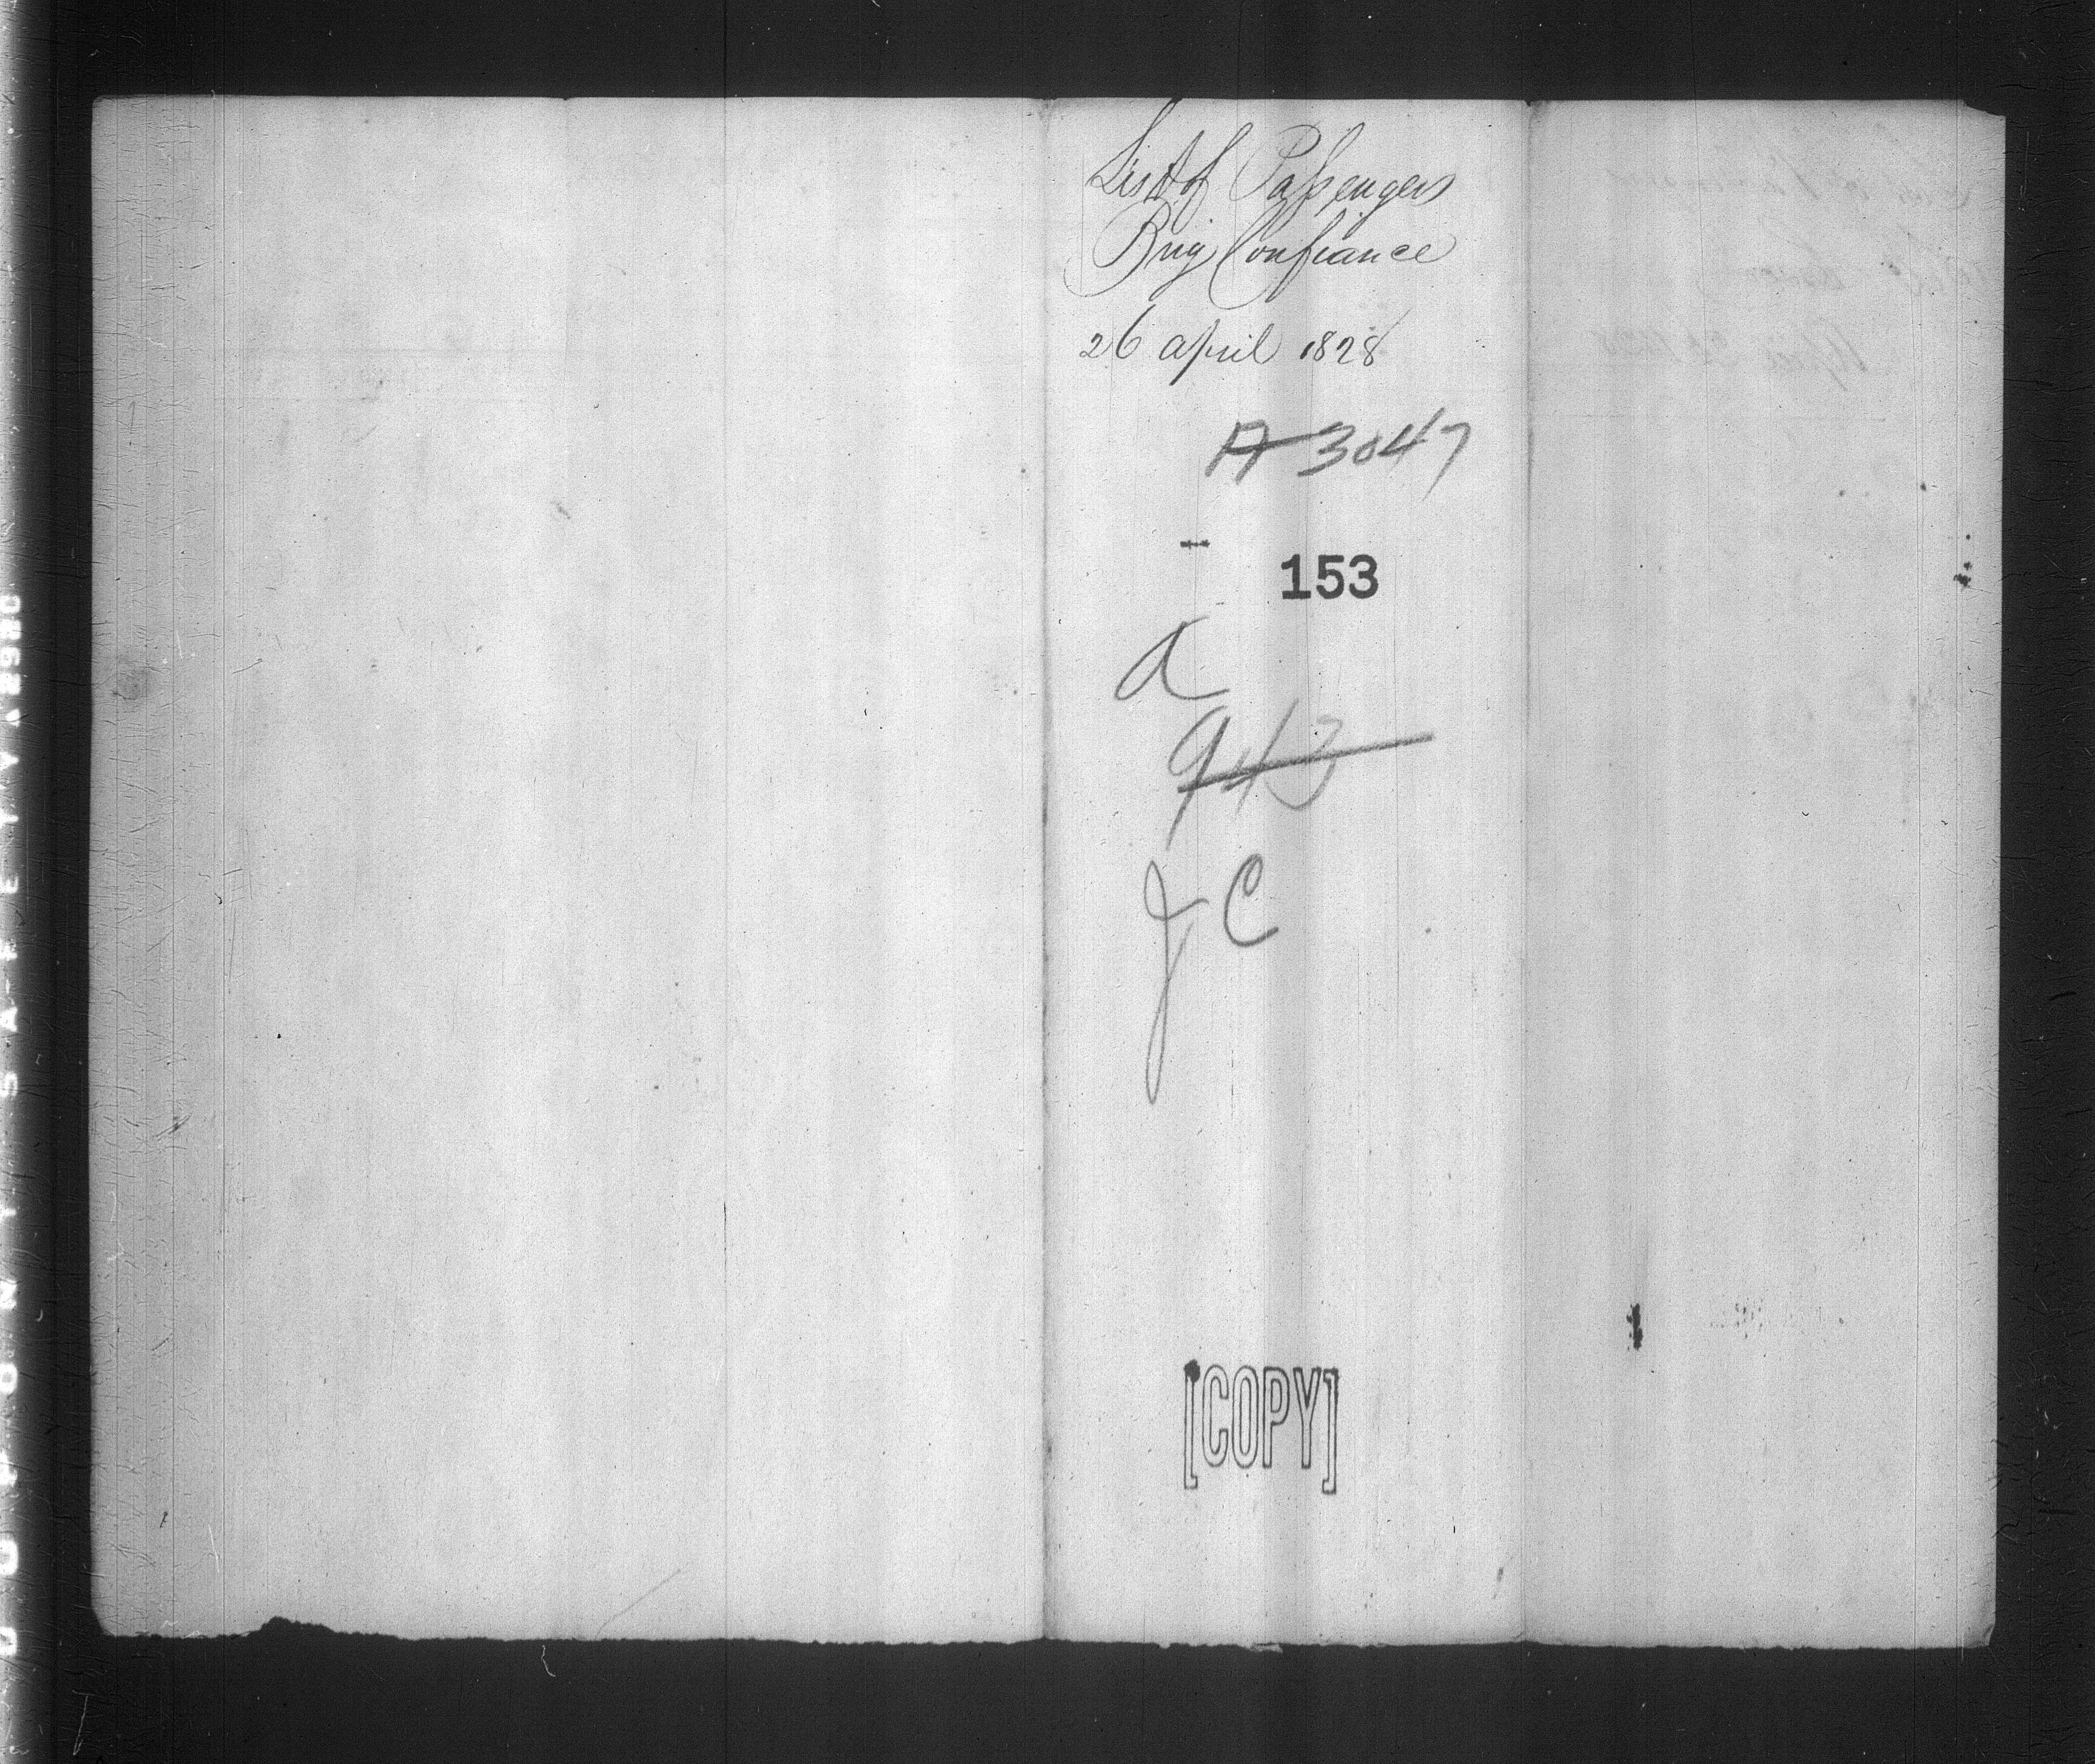 List of Passengers
Brig Confiance
26 april 1828
A 3047
153
a
943
J C
[COPY]